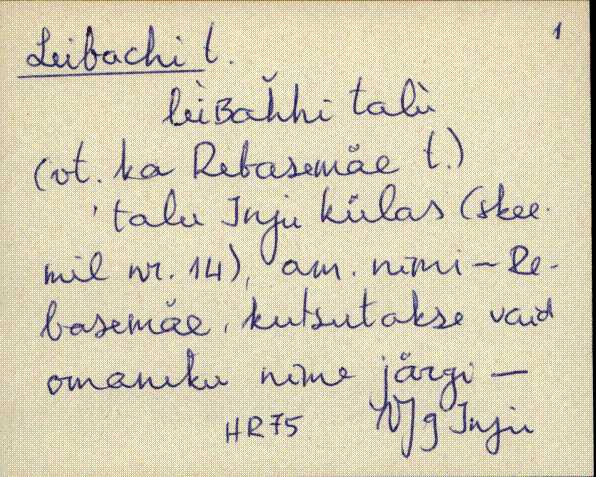 1
Leibachi t.
lèiʙaȟhi talù
(vt. ka Rebasemäe t.)
'talu Inju külas (skee-
mil nr. 14), am. nimi – Re-
basemäe, kutsutakse vaid
omaniku nime järgi –
HR75 VJg Inju